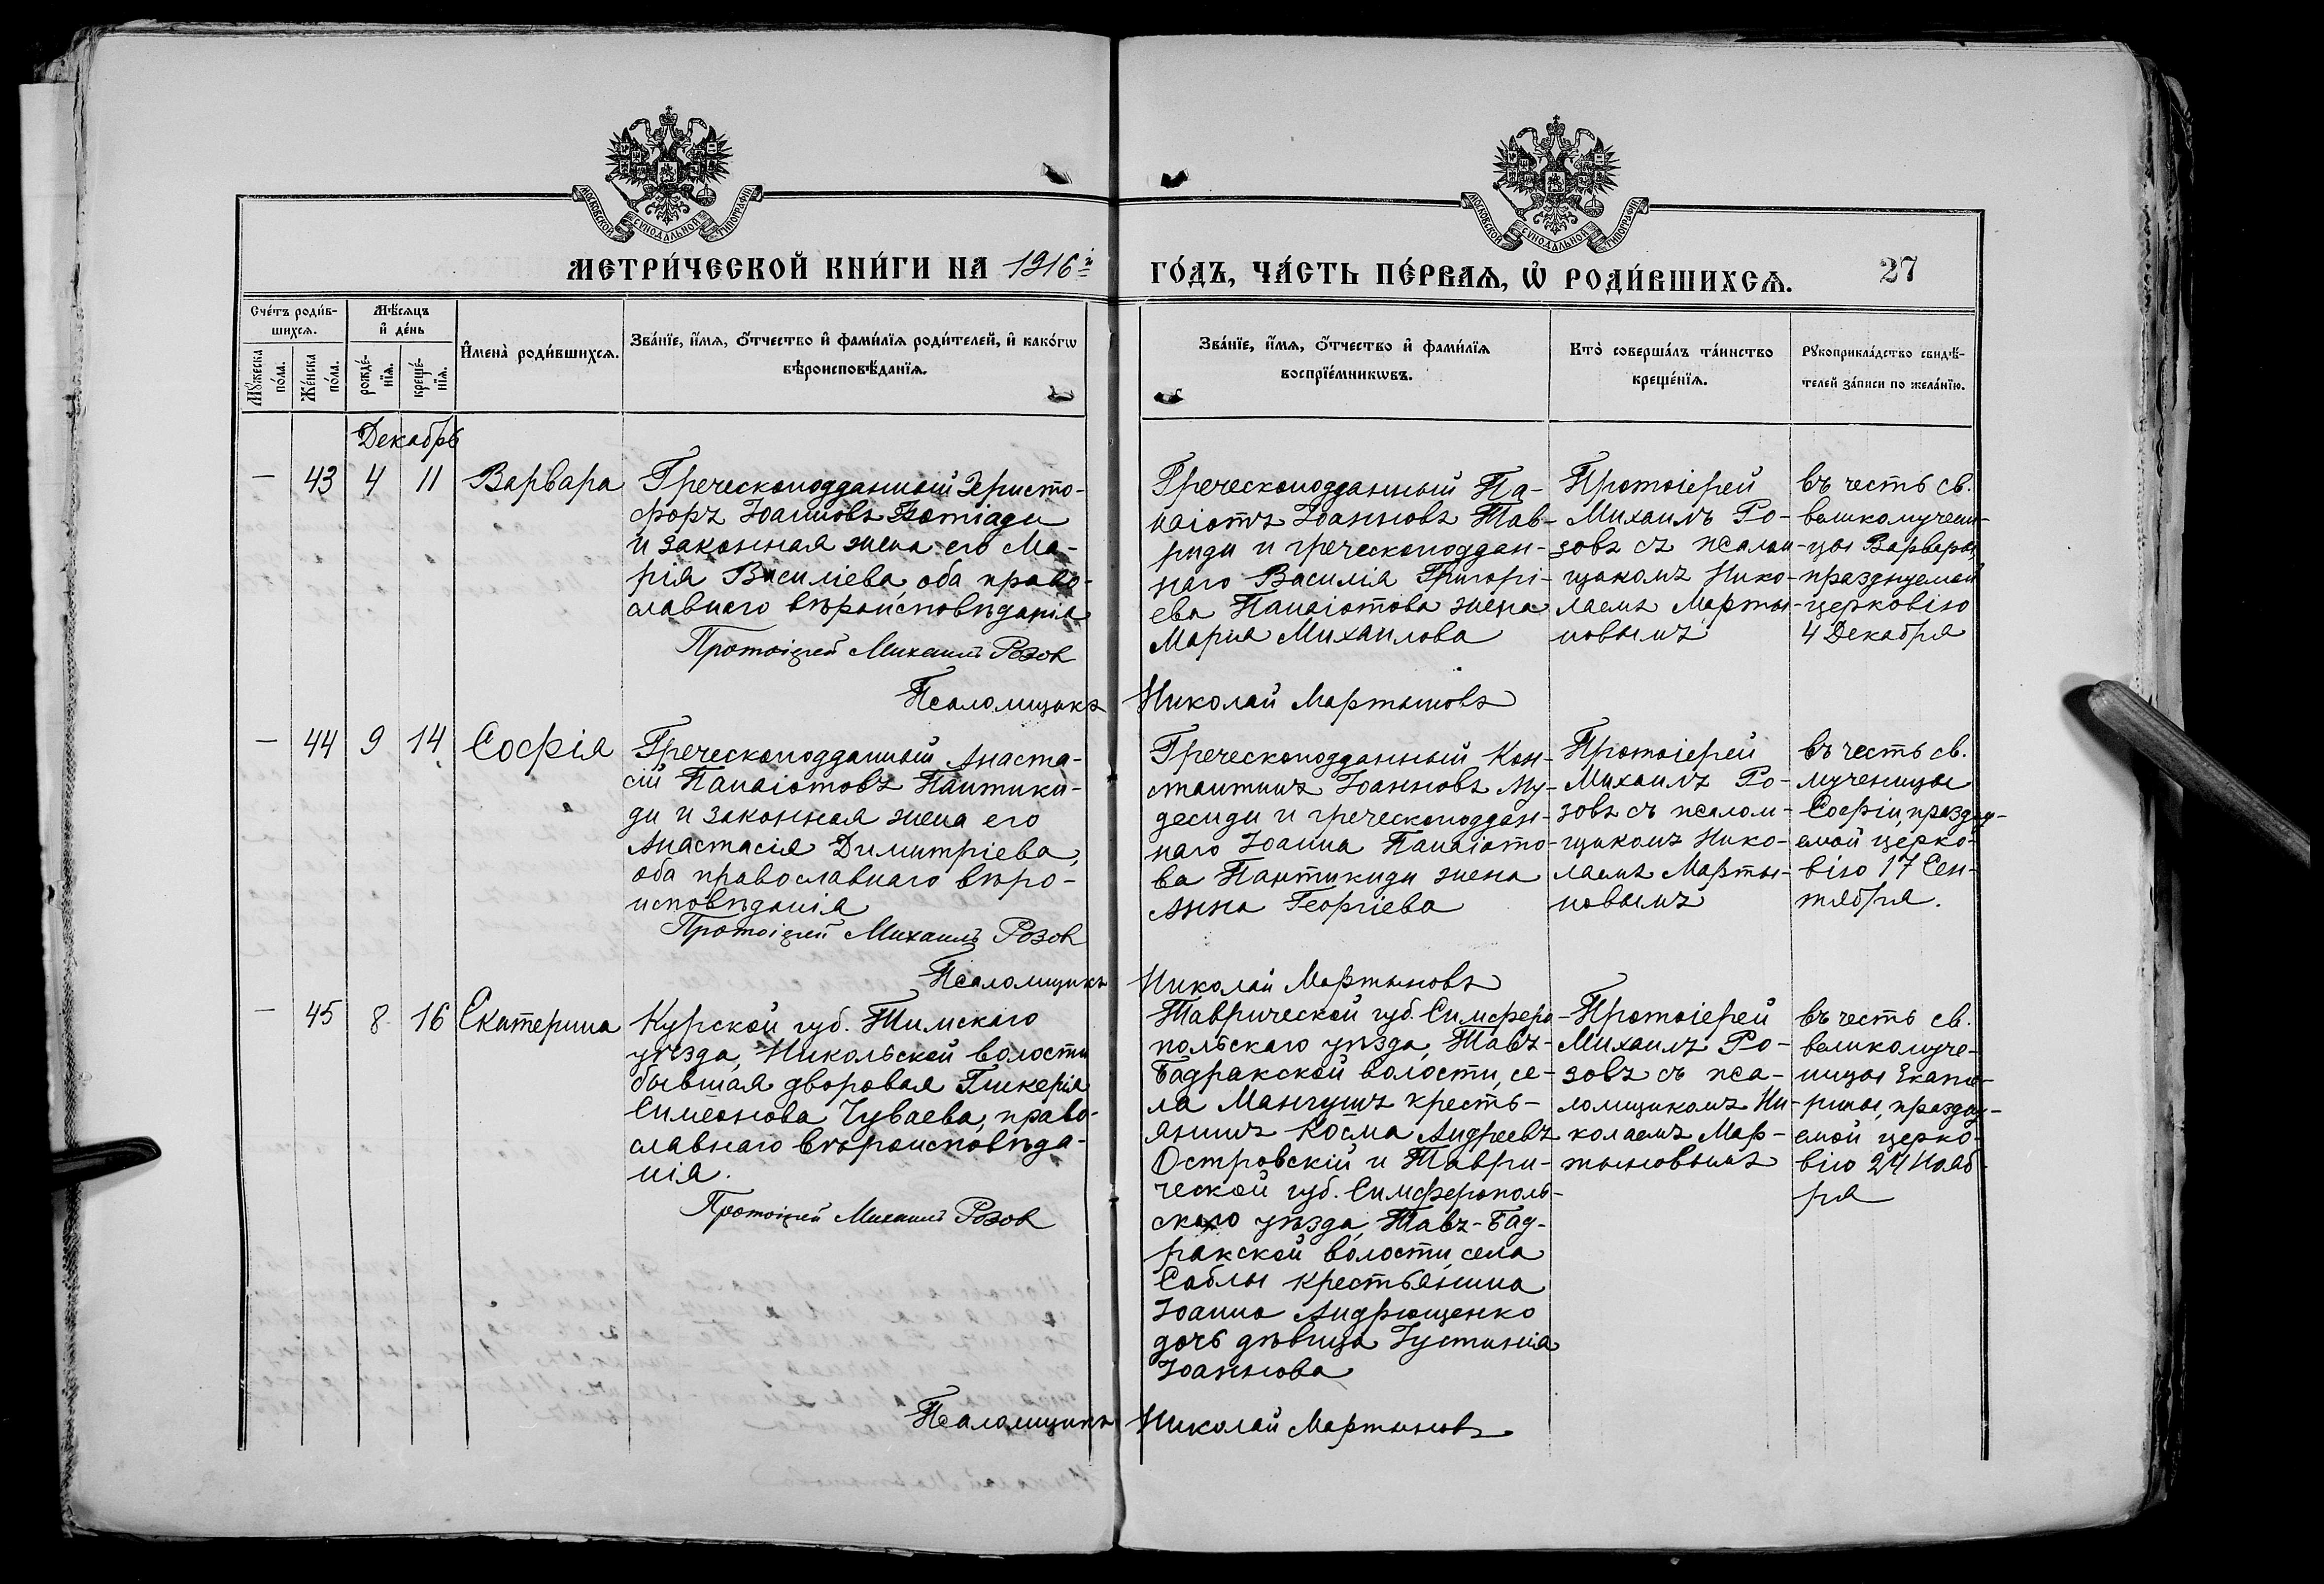 МОСКОВСКОЙ СѴНОДАЛЬНОЙ ТИПОГРАФІИ
МОСКОВСКОЙ СѴНОДАЛЬНОЙ ТИПОГРАФІИ
МЕТРИ́ЧЕСКОЙ КНИ́ГИ НА 1916й
ГО́ДЪ, ЧА́СТЬ ПЕ́РВАѦ, Ѡ҆ РОДИ́ВШИХСѦ. 27
Сче́тъ роди́в-
шихсѧ.
Мꙋ́жеска
по́ла.
Же́нска
по́ла.
Мѣ́сѧцъ
и҆ де́нь
рожде́-
нїѧ.
креще́-
нїѧ.
И҆мена̀ роди́вшихсѧ.
Зва́нїе, и҆́мѧ, ѻ҆́тчество и҆ фами́лїѧ роди́телей, и҆ како́гѡ
вѣроисповѣ́данїѧ.
Зва́нїе, и҆́мѧ, ѻ҆́тчество и҆ фами́лїѧ
воспрїе́мникѡвъ.
Кто̀ соверша́лъ та́инство
креще́нїѧ.
Рꙋкоприкла́дство свидѣ́-
телей за́писи по жела́нїю.
Декабрь
— 43 4 11 Варвара
Греческоподданный Христо-
форъ Іоанновъ
и законная жена его Ма-
рія Василіева, оба право-
славнаго вѣроисповѣданія
Протоіерей Михаилъ Розов
Греческоподданный Па-
наіотъ Іоанновъ Тав-
риди и греческоподдан-
наго Василія Григорі-
ева Панаіотова жена
Марія Михаилова
Протоіерей
Михаилъ Ро-
зовъ съ псалом-
щикомъ Нико-
лаемъ Марты-
новымъ
въ честь св.
великомучени-
цы Варвары,
празднуемой
церковію
4 Декабря
Псаломщикъ Николай Мартыновъ
— 44 9 14 Софія
Греческоподданный Анаста-
сій Панаіотовъ Пантики-
ди и законная жена его
Анастасія Димитріева,
оба православнаго вѣро-
исповѣданія
Протоіерей Михаилъ Розов
Греческоподданный Кон-
стантинъ Іоанновъ Му-
десиди и греческоподдан-
наго Іоанна Панаіото-
ва Пантикиди жена
Анна Георгіева
Протоіерей
Михаилъ Ро-
зовъ съ псалом-
щикомъ Нико-
лаемъ Марты-
новымъ
въ честь св.
мученицы
Софіи, праздну-
емой церко-
вію 17 Сен-
тября.
Псаломщикъ Николай Мартыновъ
— 45 8 16 Екатерина
Курской губ. Тимскаго
уѣзда, Никольской волости
бывшая дворовая Гликерія
Симеонова Чуваева, право-
славнаго вѣроисповѣда-
нія.
Протоіерей Михаилъ Розов
Таврической губ. Симферо-
польскаго уѣзда, Тавъ-
Бадракской волости, се-
ла Мангушъ кресть-
янинъ Косма Андреевъ
Островскій и Таври-
ческой губ. Симферополь-
скаго уѣзда, Тавъ-Бад-
ракской волости, села
Саблы крестьянина
Іоанна Андрющенко
дочь дѣвица Іустинія
Іоаннова
Протоіерей
Михаилъ Ро-
зовъ съ пса-
ломщикомъ Ни-
колаемъ Мар-
тыновымъ
въ честь св.
великомуче-
ницы Екате-
рины, праздну-
емой церко-
вію 24 Нояб-
ря
Псаломщикъ Николай Мартыновъ